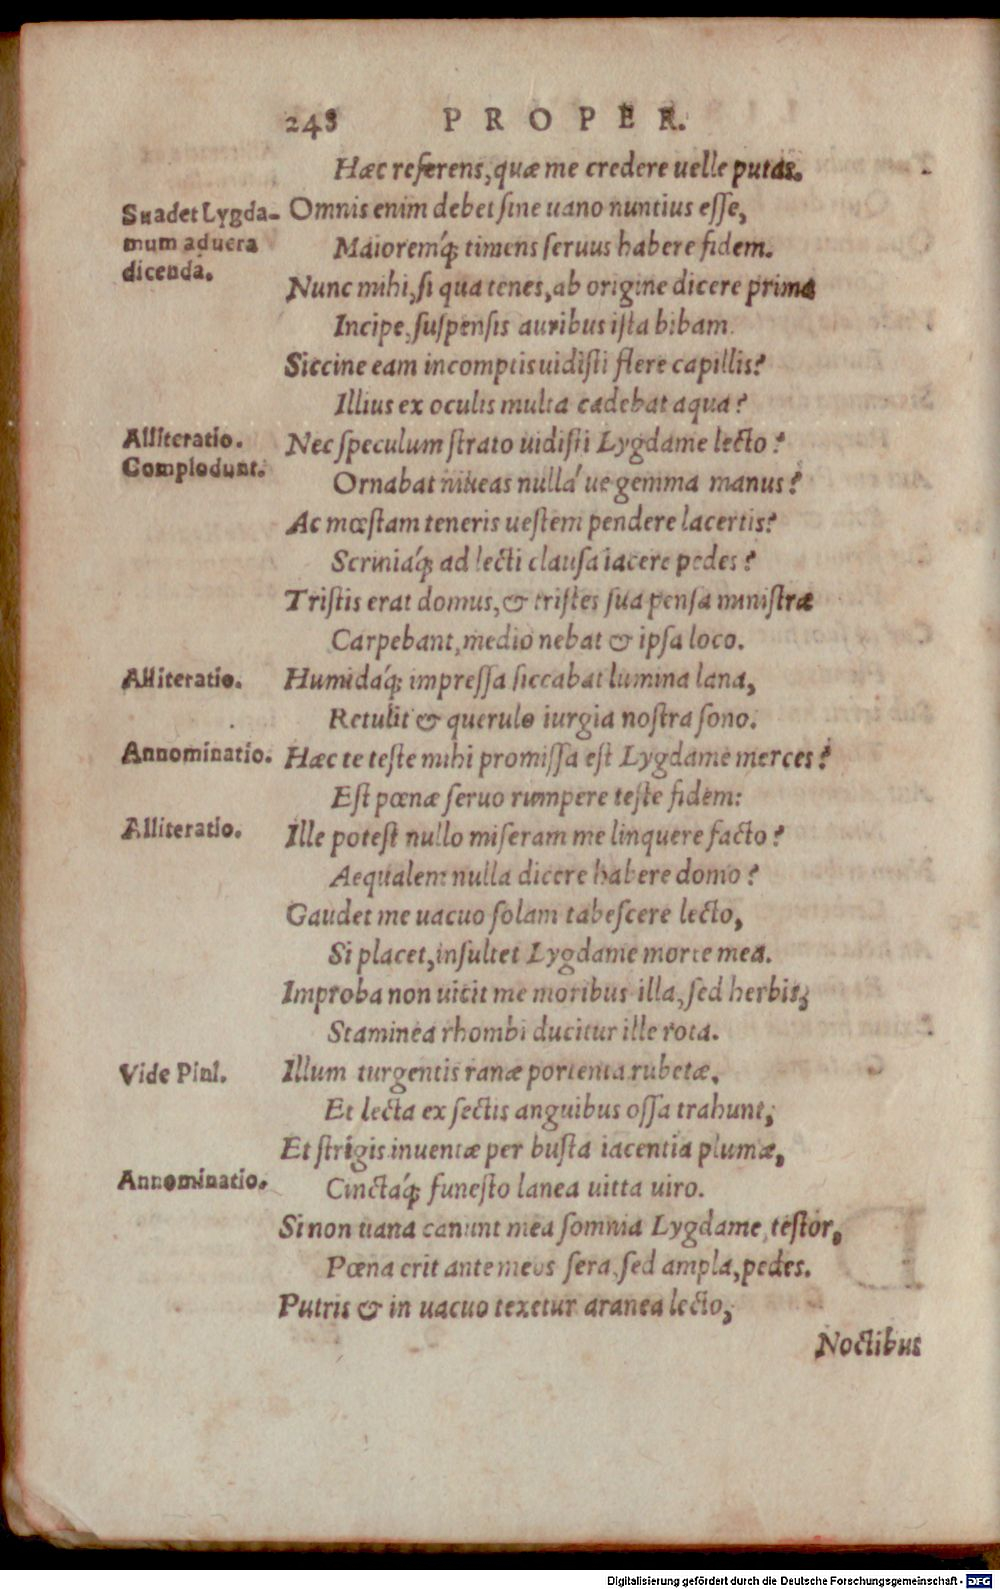 248 PROPER.
Hæc referens, quæ me credere uelle putas.
Suadet Lygda-
mum ad uera
dicenda.
Omnis enim debet sine uano nuntius esse,
Maioremq́; timens seruus habere fidem.
Nunc mihi, si qua tenes, ab origine dicere prima
Incipe, suspensis auribus ista bibam.
Siccine eam incomptis uidisti flere capillis?
Illius ex oculis multa cadebat aqua?
Alliteratio.
Complodunt.
Nec speculum strato uidisti Lygdame lecto?
Ornabat niueas nulla´ ue gemma manus?
Ac mœstam teneris uestem pendere lacertis?
Scriniaq́; ad lecti clausa iacere pedes?
Tristis erat domus, & tristes sua pensa ministræ
Carpebant, medio nebat & ipsa loco.
Alliteratio.
Humidaq́; impressa siccabat lumina lana,
Retulit & querulo iurgia nostra sono.
Annominatio.
Hæc te teste mihi promissa est Lygdame merces?
Est pœnæ seruo rumpere teste fidem:
Alliteratio.
Ille potest nullo miseram me linquere facto?
Aequalem nulla dicere habere domo?
Gaudet me uacuo solam tabescere lecto,
Si placet, insultet Lygdame morte mea.
Improba non uicit me moribus illa, sed herbis;
Staminea rhombi ducitur ille rota.
Vide Pinl.
Illum turgentis ranæ portenta rubetæ,
Et lecta ex sectis anguibus ossa trahunt,
Et strigis inuentæ per busta iacentia plumæ,
Annominatio.
Cinctaq́; funesto lanea uitta uiro.
Si non uana canunt mea somnia Lygdame, testor,
Pœna erit ante meos sera, sed ampla, pedes.
Putris & in uacuo texetur aranea lecto,
Noctibus
Digitalisierung gefördert durch die Deutsche Forschungsgemeinschaft - DFG